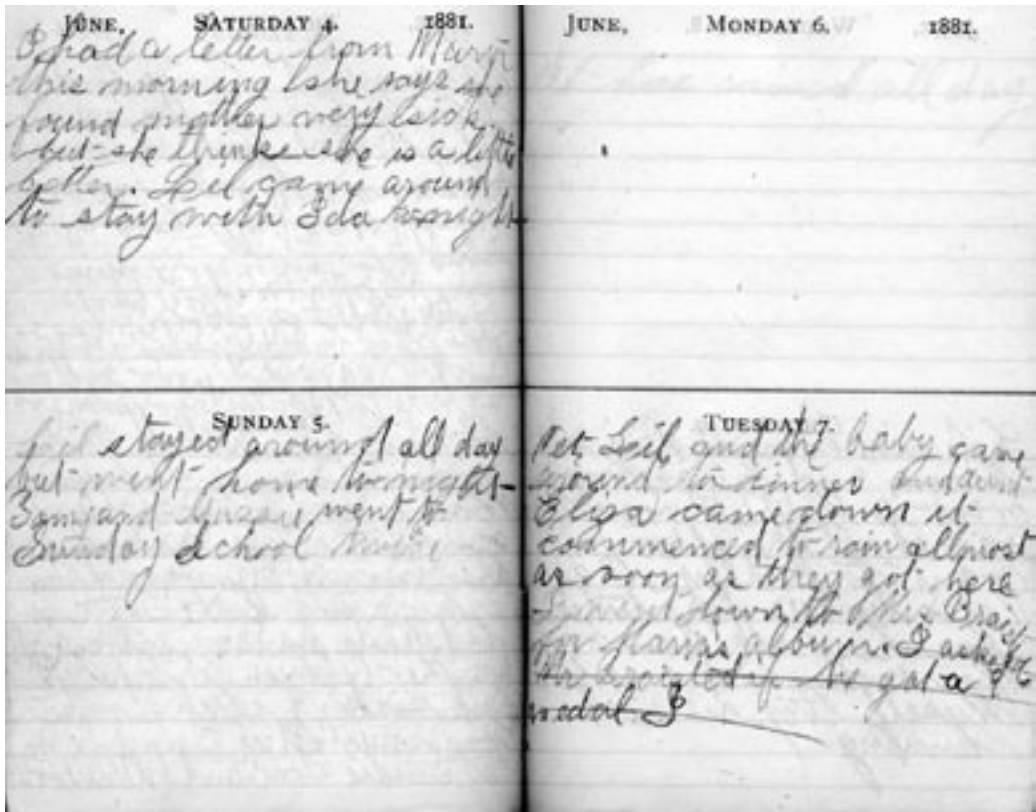 JUNE, SATURDAY 4. 1881.
I had a letter from Mary
this morning she says she
found mother very sick
but she thinks she is a little
better. Lil came around
to stay with Ida tonight
SUNDAY 5.
Lil stayed around all day
but went home tonight
and went to
Sunday School
JUNE, MONDAY 6. 1881.
It has rained all day
TUESDAY 7.
Pet Lil and the baby came
around to dinner and aunt
Elisa came down it
commenced to rain allmost
as soon as they got here
I went down to Mrs
for album. I asked
if he got a
medal I